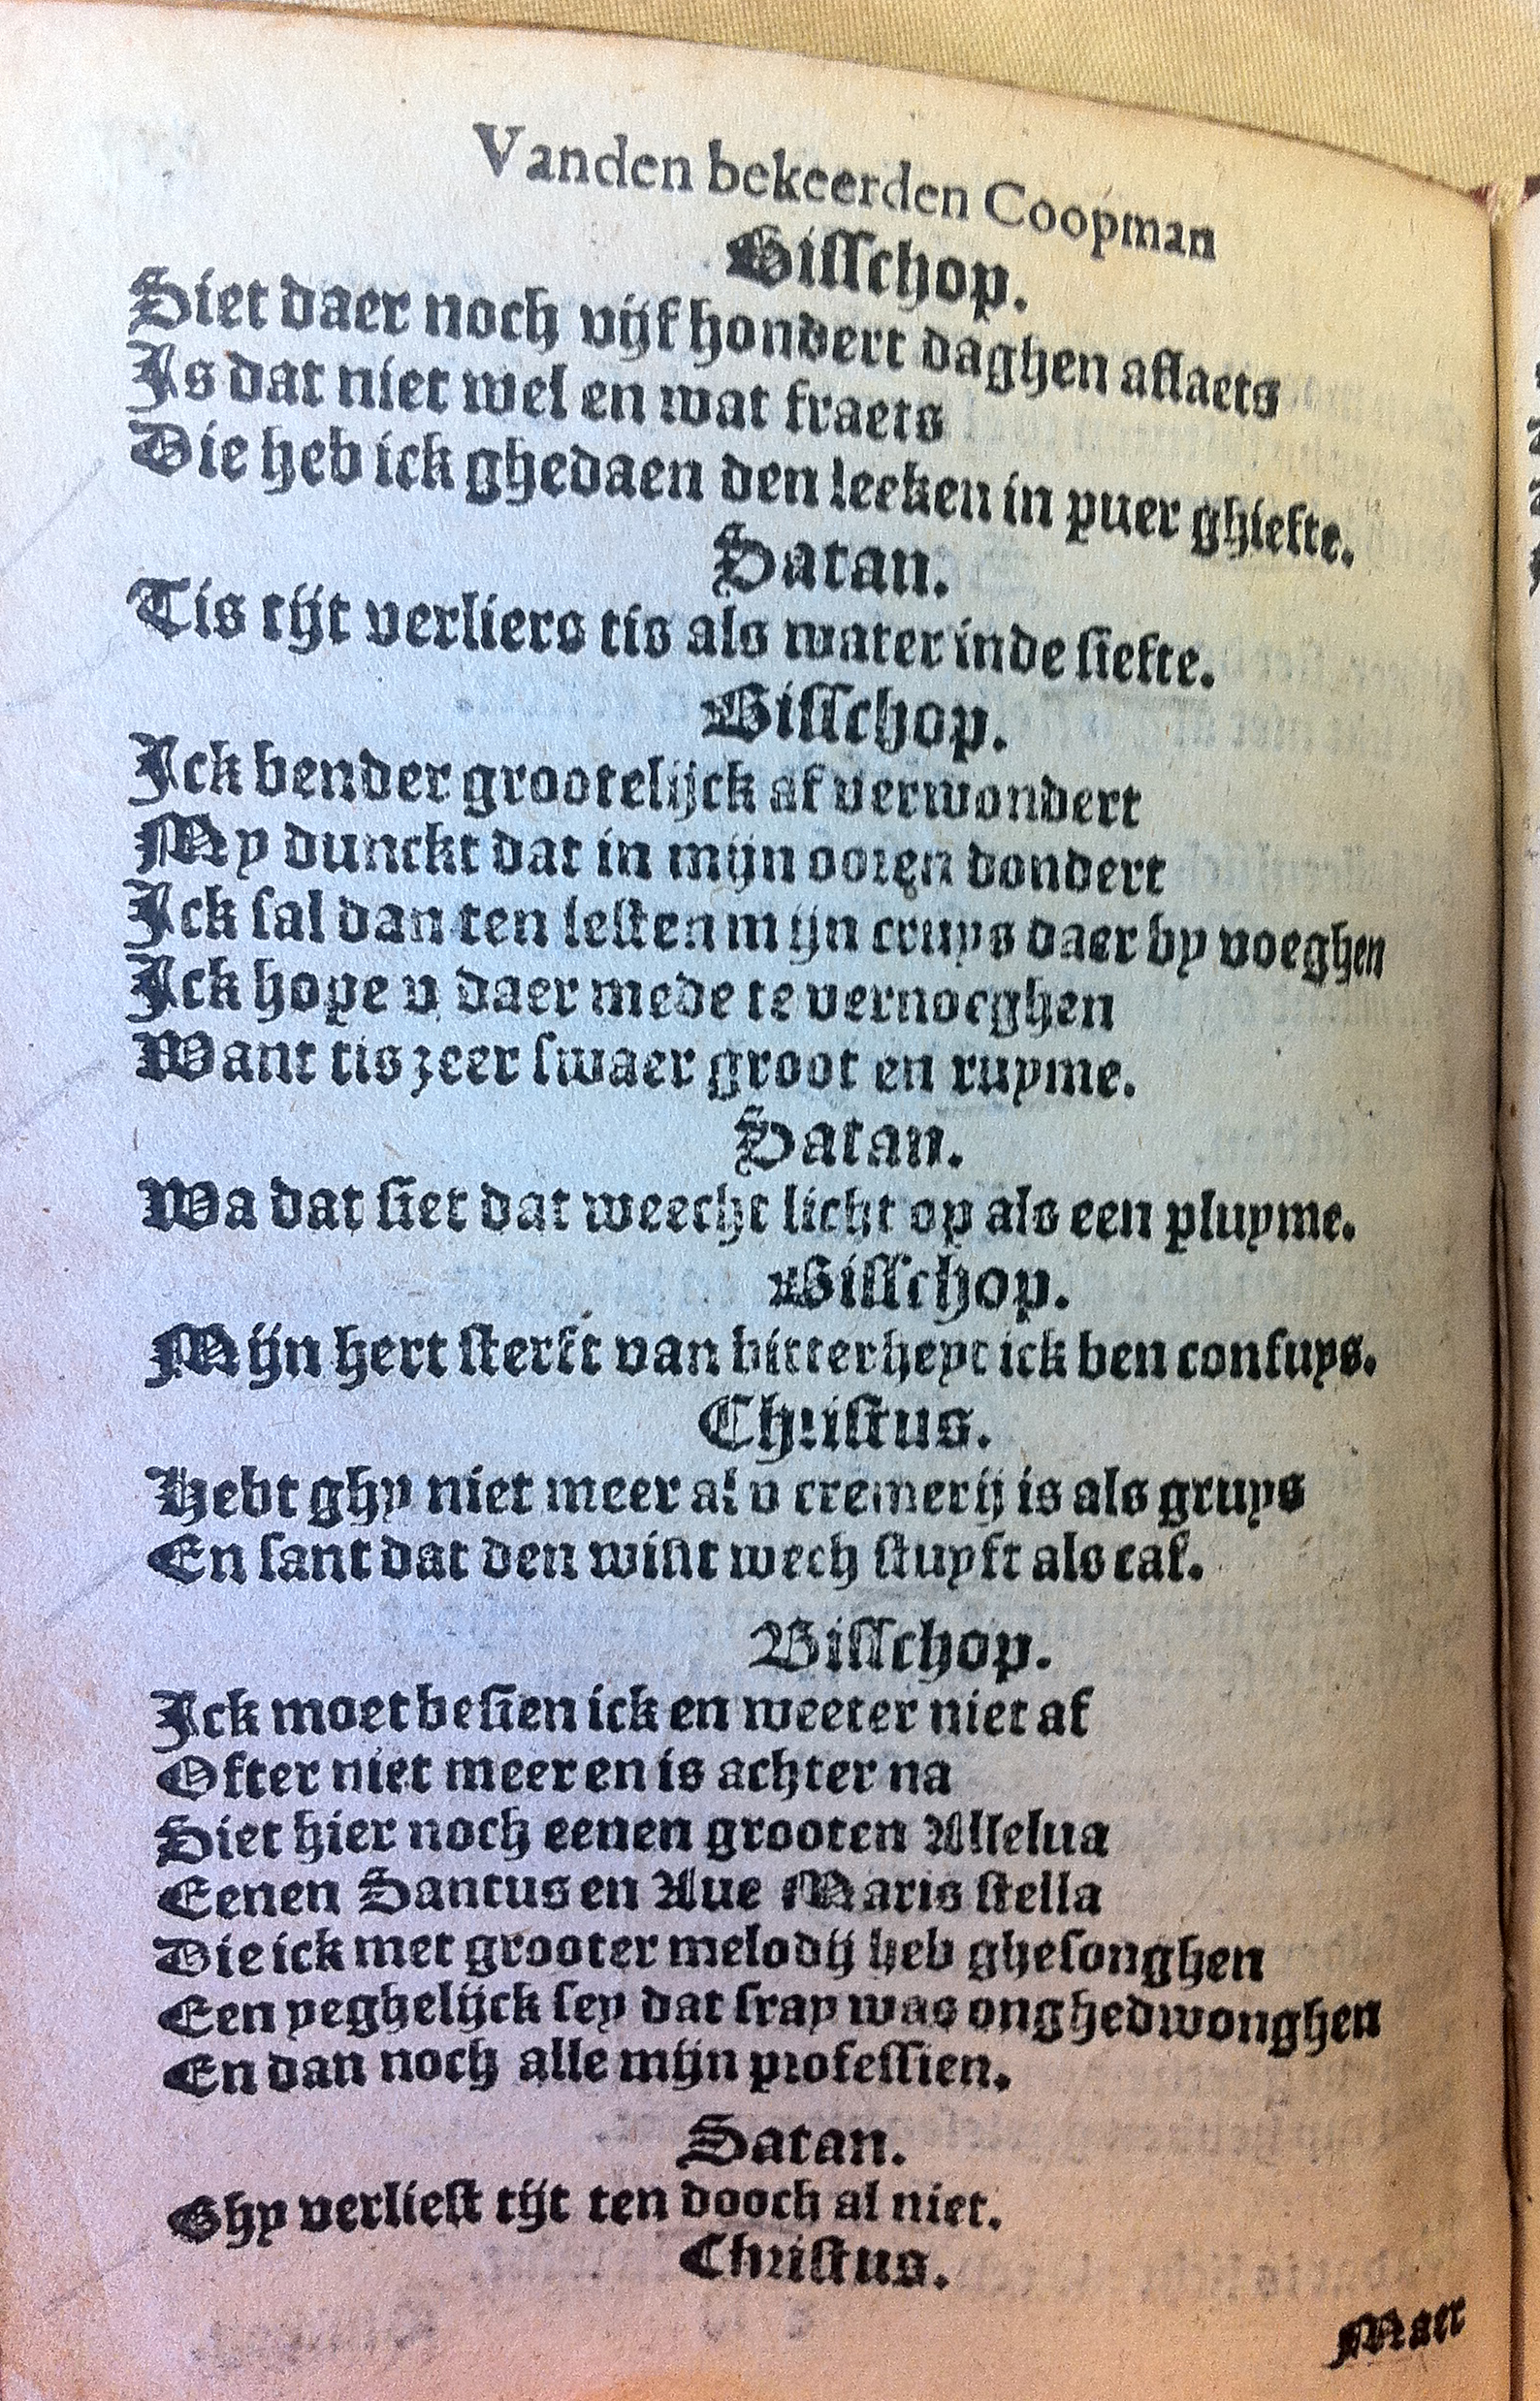 Vanden bekeerden Coopman
Bisschop.
Siet daer noch vijf hondert daghen aflaets
Is dat niet wel en wat fraets
Die heb ick ghedaen den leeken in puer ghiefte.
Satan.
Tis tijt verliers tis als water inde siefte.
Bisschop.
Ick bender grootelijck af verwondert
My dunckt dat in mijn ooren dondert
Ick sal dan ten lesten mijn cruys daer by voeghen
Ick hope v daer mede te vernoeghen
Want tis zeer swaer groot en ruyme.
Satan.
Wa dat siet dat weecht licht op als een pluyme.
Bisschop.
Mijn hert sterft van bitterheyt ick ben confuys.
Christus.
Hebt ghy niet meer al v cremerij is als gruys
En sant dat den wint wech stuyft als caf.
Bisschop.
Ick moet besien ick en weeter niet af
Ofter niet meer en is achter na
Siet hier noch eenen grooten Allelua
Eenen Santus en Aue Maris stella
Die ick met grooter melodij heb ghesonghen
Een yeghelijck sey dat fray was onghedwonghen
En dan noch alle mijn professien.
Satan.
Ghy verliest tijt ten dooch al niet.
Christus.
Maer